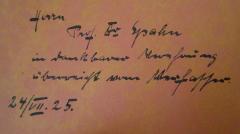 Herrn
Prof. Dr Spahn
in dankbarer Verehrung
überreicht vom Verfasser.
24/VII. 25.